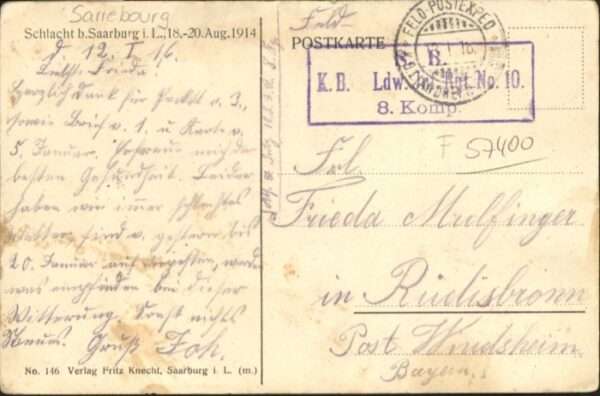 Sarrebourg
Schlacht b. Saarburg i. L., 18.-20. Aug. 1914
d 12. I. 16.
Liebste Frieda
Herzlich Dank für Packet v. 3.,
sowie Brief v. 1. u Karte v.
5. Januar. Erfreue mich der
besten Gesundheit. Leider
haben wir immer schlechtes
Wetter. Sind v. gestern bis
20. Januar auf
was empfinden bei dieser
Witterung. Sonst nichts
Neues. Gruß Joh.
No. 146 Verlag Fritz Knecht, Saarburg i. L. (m.)
Feld
POSTKARTE
FELD POSTEXPED
K. B. Ldw. No. 10.
8. Komp.
F 57400
Frl.
Frieda Mulfinger
in Rüdisbronn
Post Windsheim
Bayern.